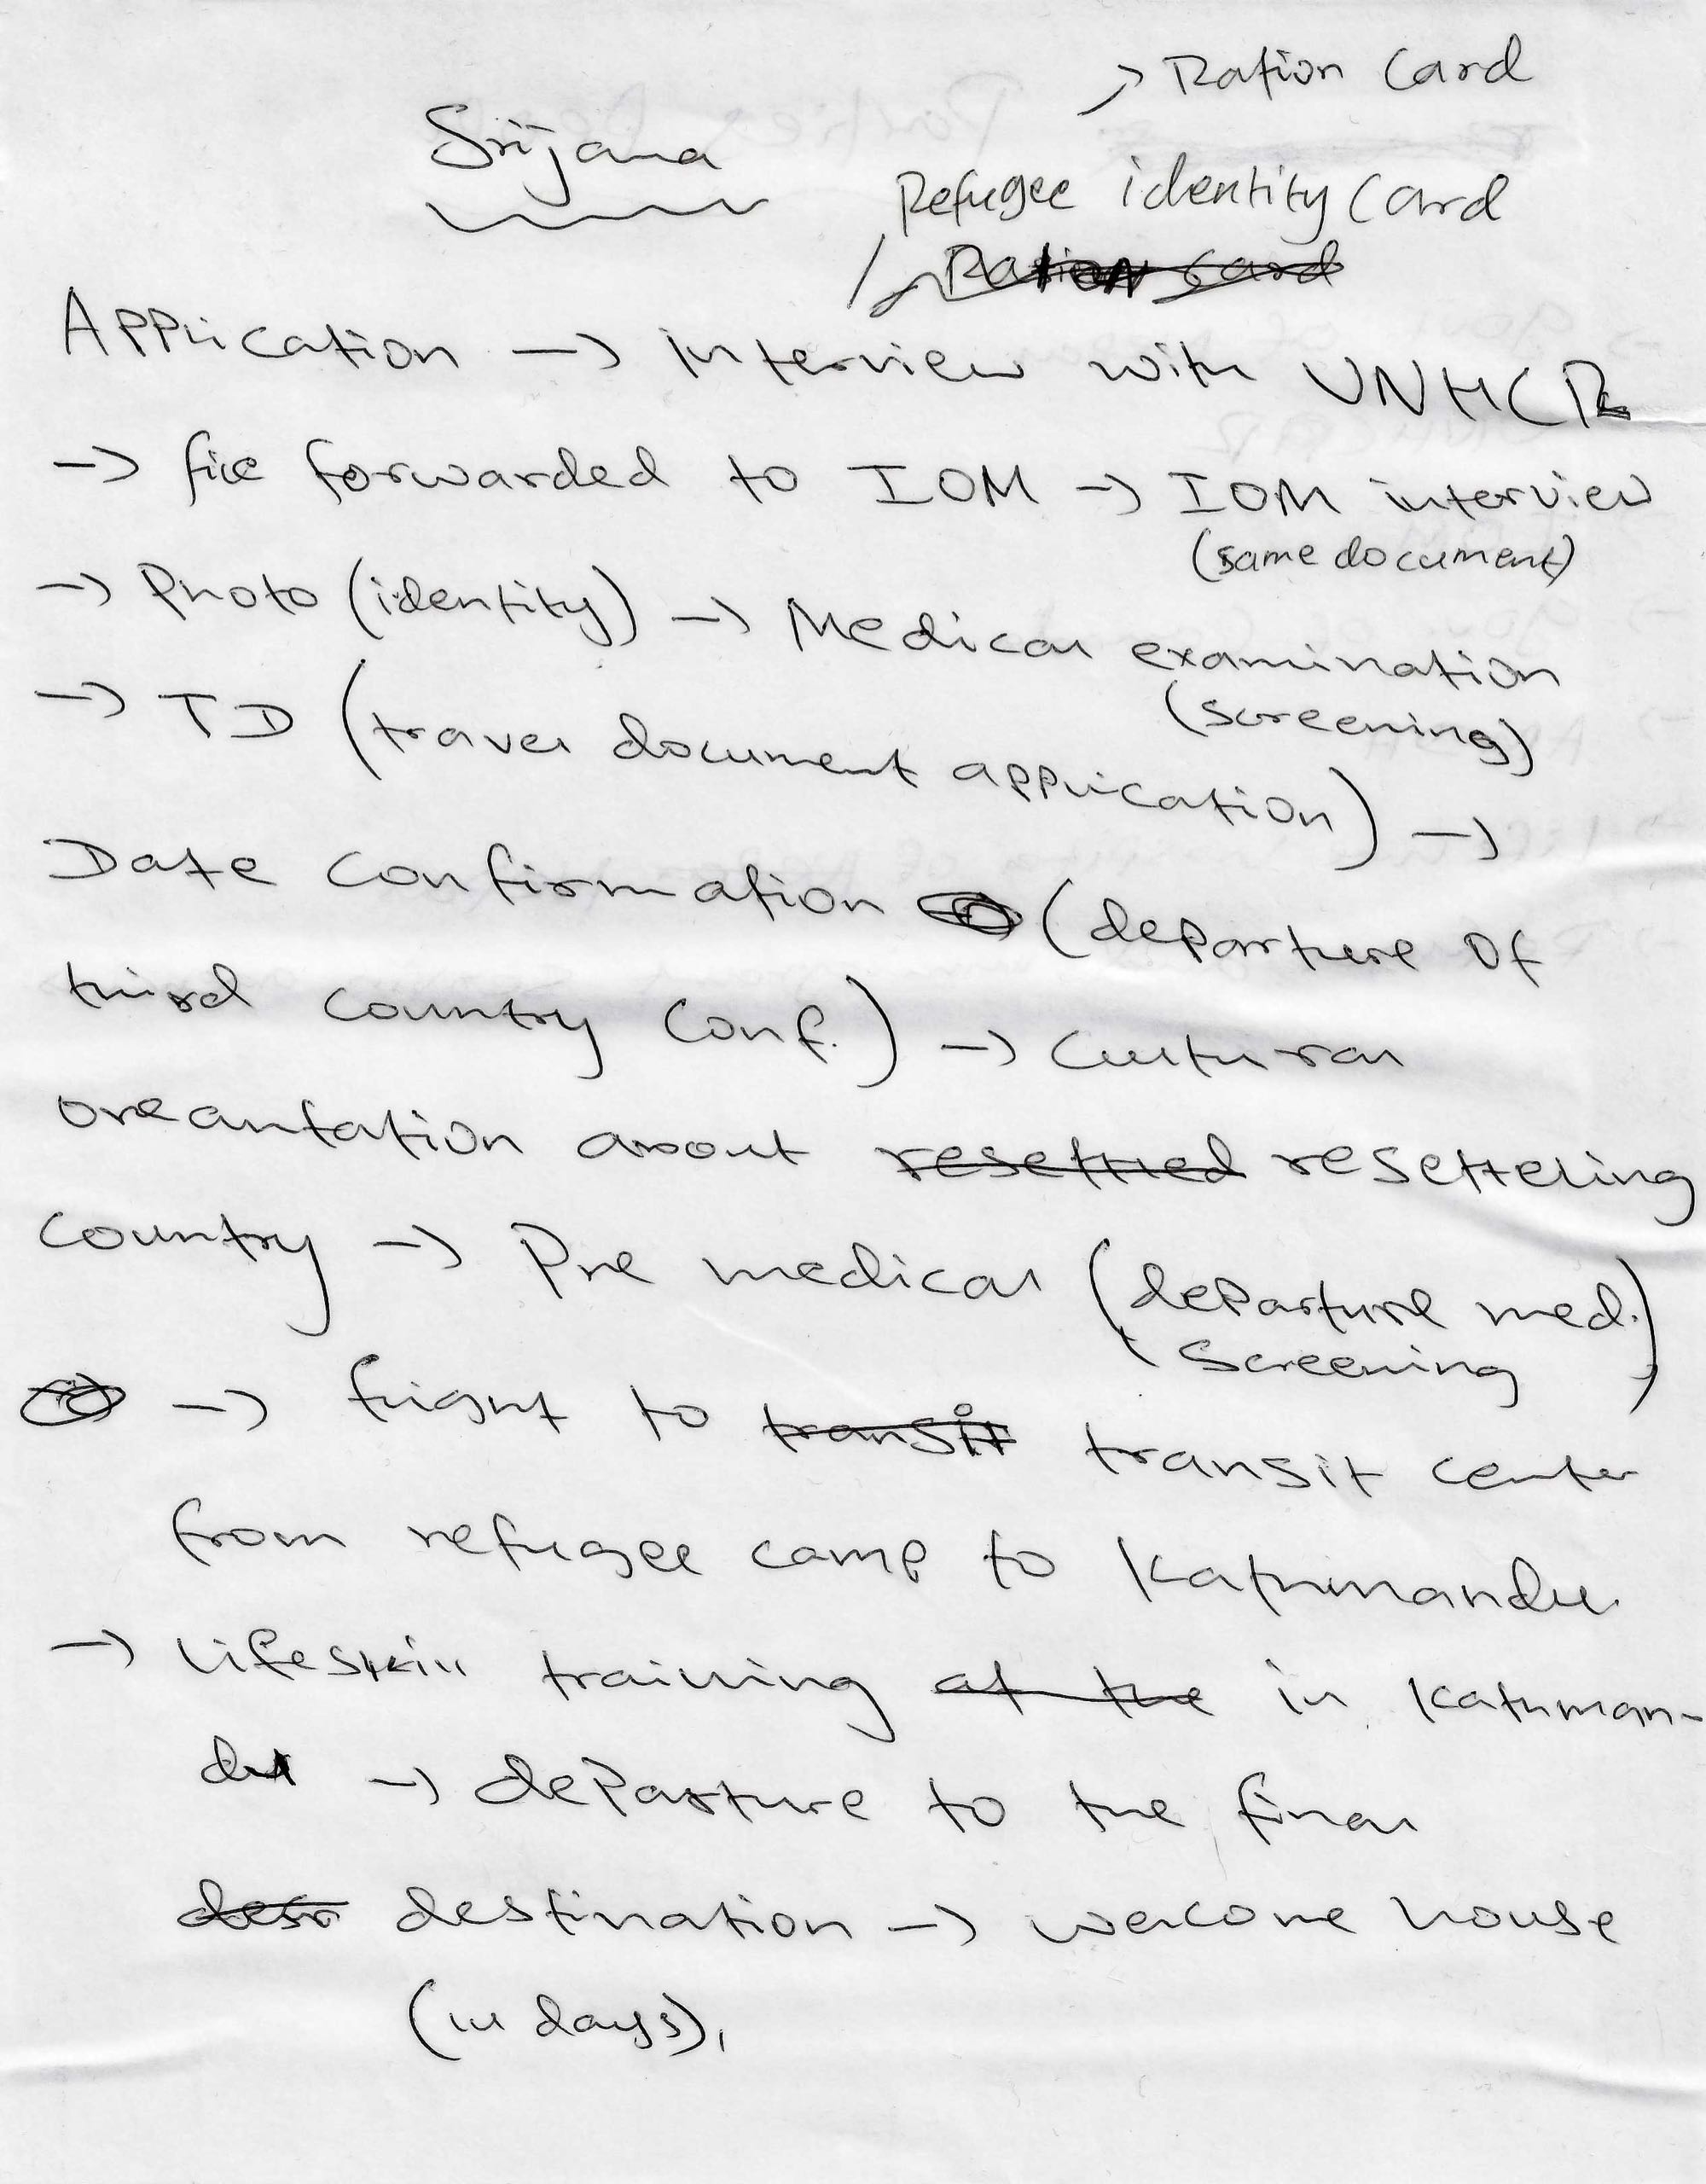 → Ration Card
Srijana
Refugee identity Card
Ration Card
Application → interview with UNHCR
→ file forwarded to IOM → IOM interview
(same document)
→ Photo (identity) → Medical examination
(screening)
→ TD (travel document application) →
Date Confirmation (departure of
third country Conf.) → Cultural
oreantation about resettled resetteling
country → Pre medical (departure med.)
(Screening)
→ flight to transit transit center
from refugee camp to Kathmandu
→ Lifeskill training at the in Kathman-
du → departure to the final
destination → welcome house
(in days),